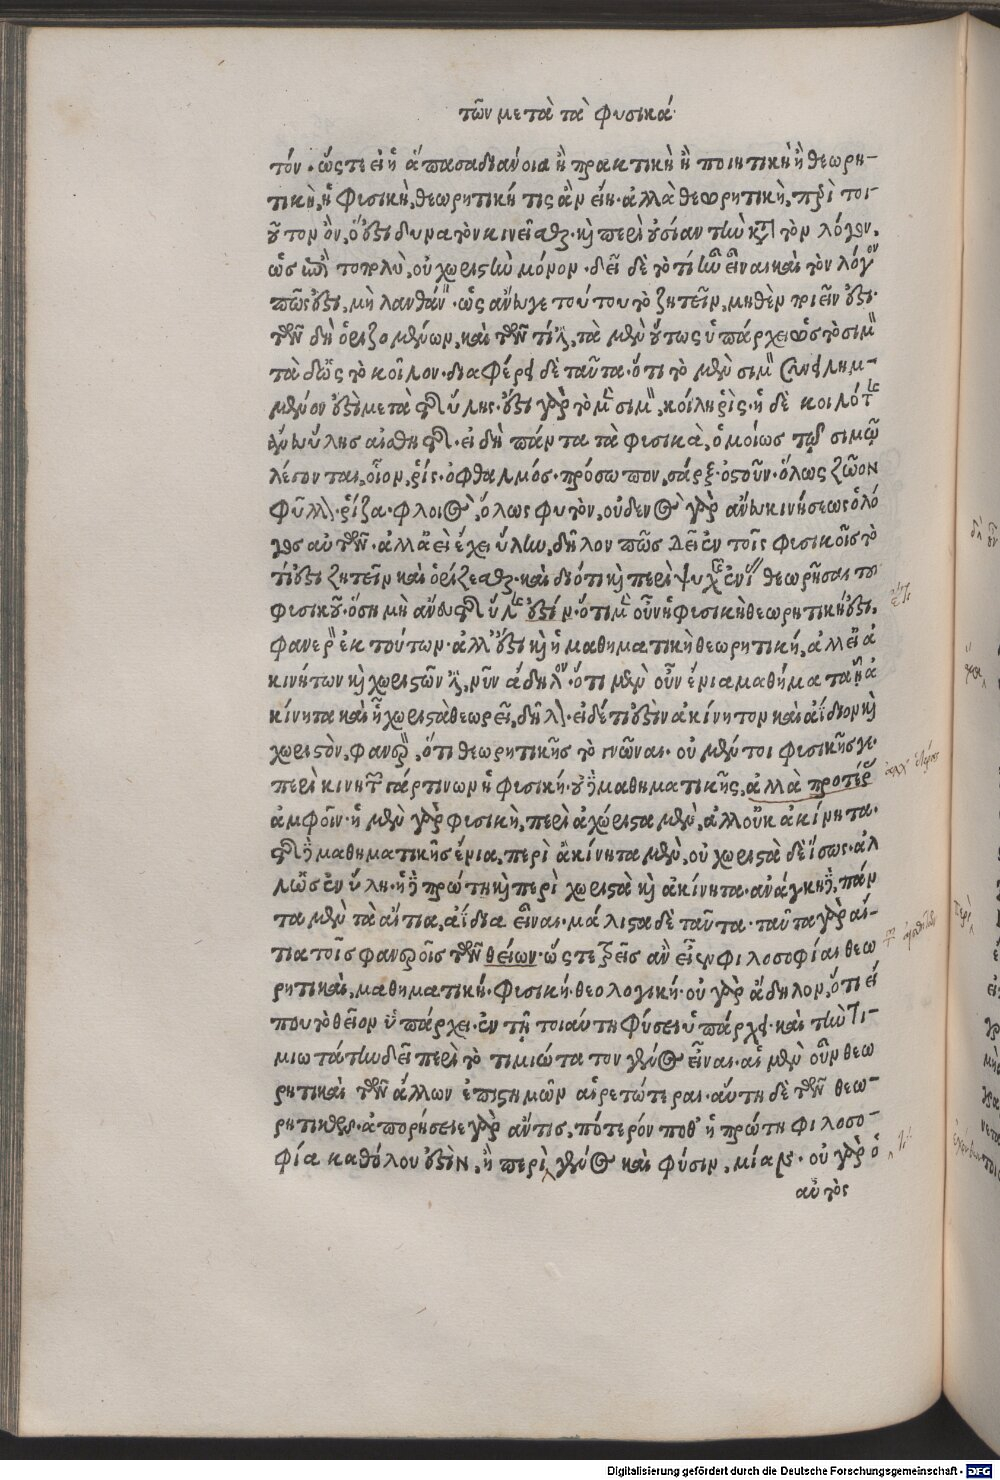 τῶν μετὰ τὰ φυσικά
τόν. ὥςτε εἰ ἡ ἅπασα διάνοια ἢ πρακτικὴ ἢ ποιητικὴ ἢ θεωρη-
τικὴ, ἡ φυσικὴ, θεωρητική τις ἂν εἴη. ἀλλὰ θεωρητικὴ, περὶ τοι-
οῦτον ὂν, ὅ ἐστι δυνατὸν κινεῖσθαι. καὶ περὶ οὐσίαν τὴν κατὰ τὸν λόγον,
ὡς ἐπὶ τοπολὺ, οὐ χωριστὴν μόνον. δεῖ δὲ τὸ τί ἦν εἶναι καὶ τὸν λόγον
πῶς ἐστι, μὴ λανθάνειν. ὡς ἄνευγε τούτου τὸ ζητεῖν, μηθὲν ποιεῖν ἐστι.
τῶν δὴ ὁριζομένων, καὶ τῶν τί ἐστι, τὰ μὲν οὕτως ὑπάρχει ὡς τὸ σιμὸν
τὰ δ' ὡς τὸ κοῖλον. διαφέρει δὲ ταῦτα. ὅτι τὸ μὲν σιμὸν συνειλημ-
μένον ἐστὶ μετὰ τῆς ὕλης. ἔστι γὰρ τὸ μὲν σιμὸν, κοίλη ῥίς. ἡ δὲ κοιλότης
ἄνευ ὕλης αἰσθητῆς. εἰ δὴ πάντα τὰ φυσικὰ, ὁμοίως τῷ σιμῷ
λέγονται, οἷον, ῥίς. ὀφθαλμός. πρόσωπον, σάρξ. ὀστοῦν. ὅλως ζῶον
φύλλον. ῥίζα. φλοιὸς, ὅλως φυτὸν, οὐδενὸς γὰρ ἄνευ κινήσεως ὁ λό
γος αὐτῶν. ἀλλ' ἀεὶ ἔχει ὕλην, δῆλον πῶς δεῖ ἐν τοῖς φυσικοῖς τὸ
τί ἐστι ζητεῖν καὶ ὁρίζεσθαι. καὶ διότι καὶ περὶ ψυχῆς ἐνίης θεωρῆσαι τοῦ
φυσικοῦ. ὅση μὴ ἄνευ τῆς ὕλης ἐστίν. ὅτι μὲν οὖν ἡ φυσικὴ θεωρητική ἐστι,
φανερὸν ἐκ τούτων. ἀλλ' ἔστι καὶ ἡ μαθηματικὴ θεωρητική, ἀλλ' εἰ ἀ
κινήτων καὶ χωριστῶν ἐστι, νῦν ἄδηλον. ὅτι μὲν οὖν ἔνια μαθήματα ᾗ ἀ
κίνητα καὶ ᾗ χωριστὰ θεωρεῖ, δῆλον. εἰ δέ τι ἐστὶν ἀκίνητον καὶ ἀΐδιον καὶ
χωριστὸν, φανερὸν, ὅτι θεωρητικῆς τὸ γνῶναι. οὐ μέντοι φυσικῆς γε.
περὶ κινητῶν γάρ τινων ἡ φυσική. οὐδὲ μαθηματικῆς, ἀλλὰ προτέρας
ἀμφοῖν. ἡ μὲν γὰρ φυσικὴ, περὶ ἀχώριστα μὲν, ἀλλ' οὐκ ἀκίνητα.
τῆς δὲ μαθηματικῆς ἔνια, περὶ ἀκίνητα μὲν, οὐ χωριστὰ δὲ ἴσως. ἀλ
λ' ὡς ἐν ὕλη. ἡ δὲ πρώτη καὶ περὶ χωριστὰ καὶ ἀκίνητα. ἀνάγκη δὲ, πάν
τα μὲν τὰ αἴτια, ἀΐδια εἶναι. μάλιστα δὲ ταῦτα. ταῦτα γὰρ αἴ-
τια τοῖς φανεροῖς τῶν θείων. ὥςτε τρεῖς ἂν εἶεν φιλοσοφίαι θεω
ρητικαὶ, μαθηματική. φυσική. θεολογική. οὐ γὰρ ἄδηλον, ὅτι εἴ
που τὸ θεῖον ὑπάρχει. ἐν τῇ τοιαύτη φύσει ὑπάρχει. καὶ τὴν τι-
μιωτάτην δεῖ περὶ τὸ τιμιώτατον γένος εἶναι. αἱ μὲν οὖν θεω
ρητικαὶ τῶν ἄλλων ἐπιστημῶν αἱρετώτεραι. αὕτη δὲ τῶν θεω-
ρητικῶν. ἀπορήσειε γὰρ ἄν τις, πότερόν ποθ' ἡ πρώτη φιλοσο-
φία καθόλου ἐστὶν, ἢ περὶ γένος καὶ φύσιν, μίαν. οὐ γὰρ ὁ
αὐτὸς